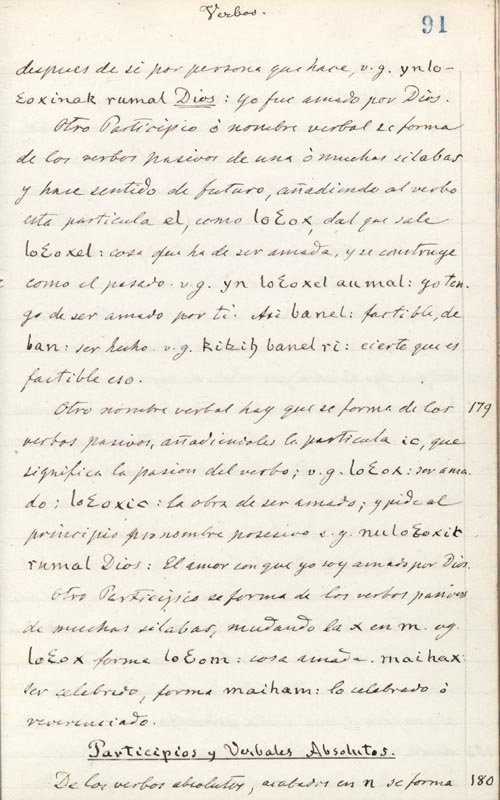 Verbos.
91
despues de si por persona que hace, v.g. ynlo-
Ɛoxinak rumal Dios: yo fue amado por Dios.
Otro Participio ò nombre verbal se forma
de los verbos pasivos de una ò muchas silabas
y hace sentido de futuro, añadiendo al verbo
esta particula el, como loƐox, dal que sale
loƐoxel: cosa que ha de ser amada, y se construye
como el pasado. v.g. yn loƐoxel aumal: yo ten-
go de ser amado por ti. Asi banel: factible, de
ban: ser hecho. v.g. kitzih banel ri: cierto que es
factible eso.
Otro nombre verbal hay que se forma de los 179
verbos pasivos, añadiendoles la particula ic, que
significa la pasion del verbo; v.g. loƐox: ser ama-
do: loƐoxic: la obra de ser amado; y pide al
principio pronombre posesivo v.g. nuloƐoxic
rumal Dios: El amor con que yo soy amado por Dios.
Otro Participio se forma de los verbos pasivos
de muchas silabas, mudando la x en m. vg.
loƐox forma loƐom: cosa amada. maihax:
ser celebrado, forma maiham: lo celebrado ò
reverenciado.
Participios y Verbales Absolutos.
De los verbos absolutos, acabados en n se forma 180